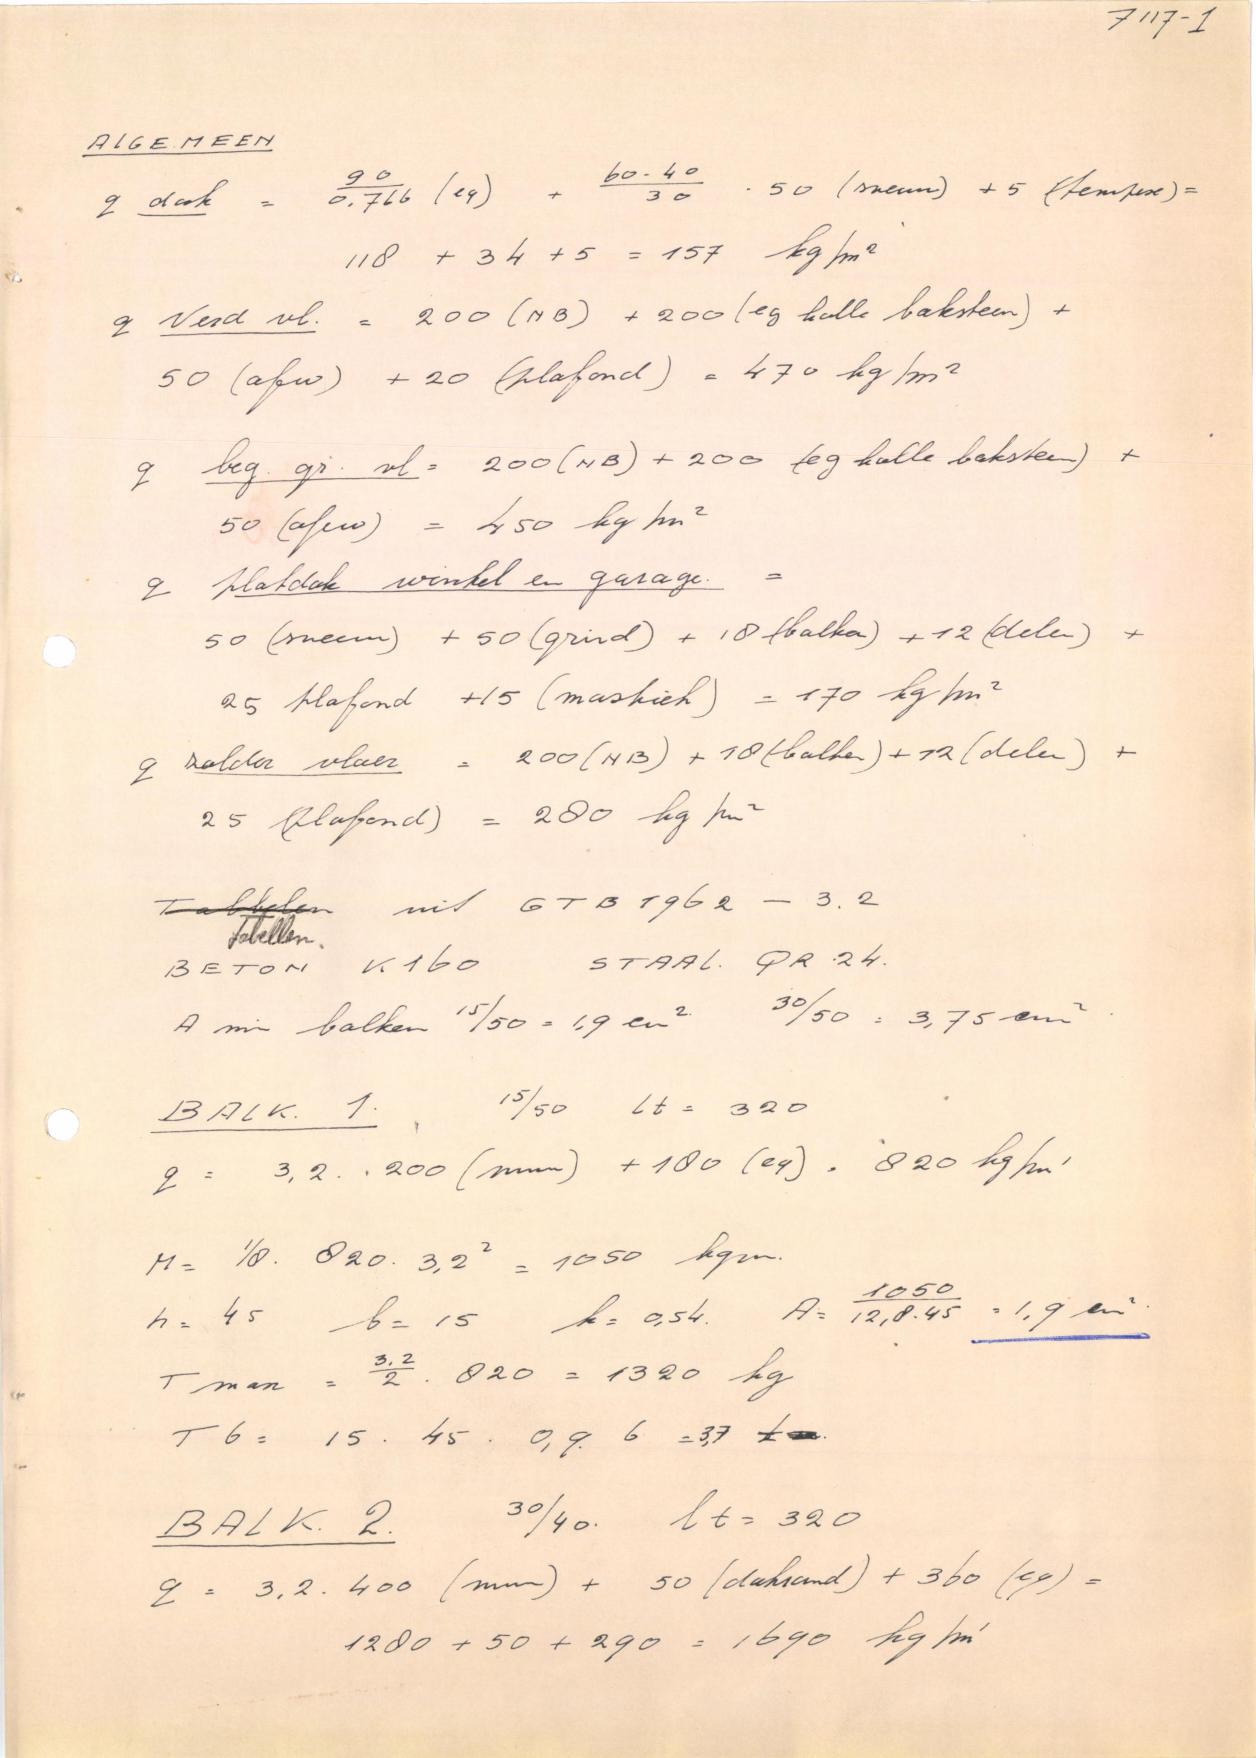 7117-1
ALGEMEEN
q dak = 90/0.766 (eg) + 60-40/30 . 50 (sneeuw) + 5 (tempex) =
118 + 34 + 5 = 157 kg/m²
q Verd vl. = 200 (NB) + 200 (eg holle baksteen) +
50 (afw) + 20 (plafond) = 470 kg/m²
q beg. gr. vl = 200 (NB) + 200 (eg holle baksteen) +
50 (afw) = 450 kg/m²
q platdak winkel en garage. =
50 (sneeuw) + 50 (grind) + 18 (balken) + 12 (delen) +
25 plafond + 15 (mastiek) = 170 kg/m²
q zolder vloer = 200 (NB) + 18 (balken) + 12 (delen) +
25 (plafond) = 280 kg/m²
Tabbelen uit GTB 1962 – 3.2
Tabellen.
BETON K160 STAAL. QR 24.
A min balken 15/50 = 1,9 cm² 30/50 = 3,75 cm²
BALK. 1. 15/50 lt = 320
q = 3,2 . 200 (muur) + 180 (eg) = 820 kg/m'
M = 1/8 . 820 . 3,2² = 1050 kgm.
h = 45 b = 15 k = 0,54. A = 1050/12,8.45 = 1,9 cm²
T max = 3,2/2 . 820 = 1320 kg
T b = 15 . 45 . 0,9 . 6 = 3,7
BALK. 2. 30/40. lt = 320
q = 3,2 . 400 (muur) + 50 (dakrand) + 360 (eg) =
1280 + 50 + 290 = 1690 kg/m'